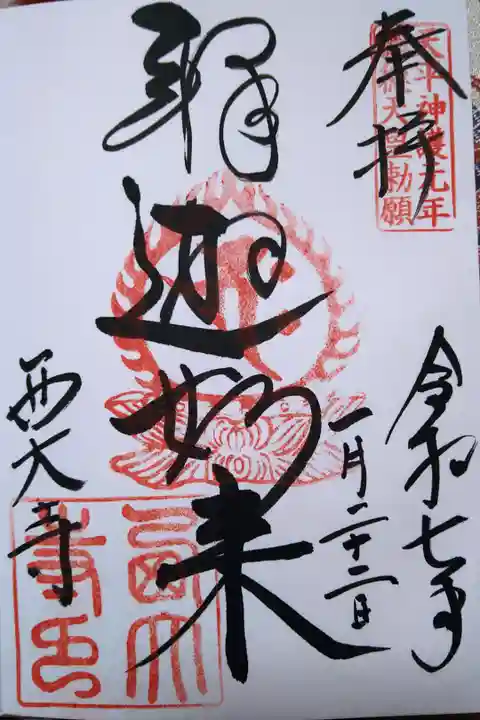 奉拝
天平神護元年
稱徳天皇勅願
令和七年
一月二十二日
釋迦如来
西大寺
西大
寺印